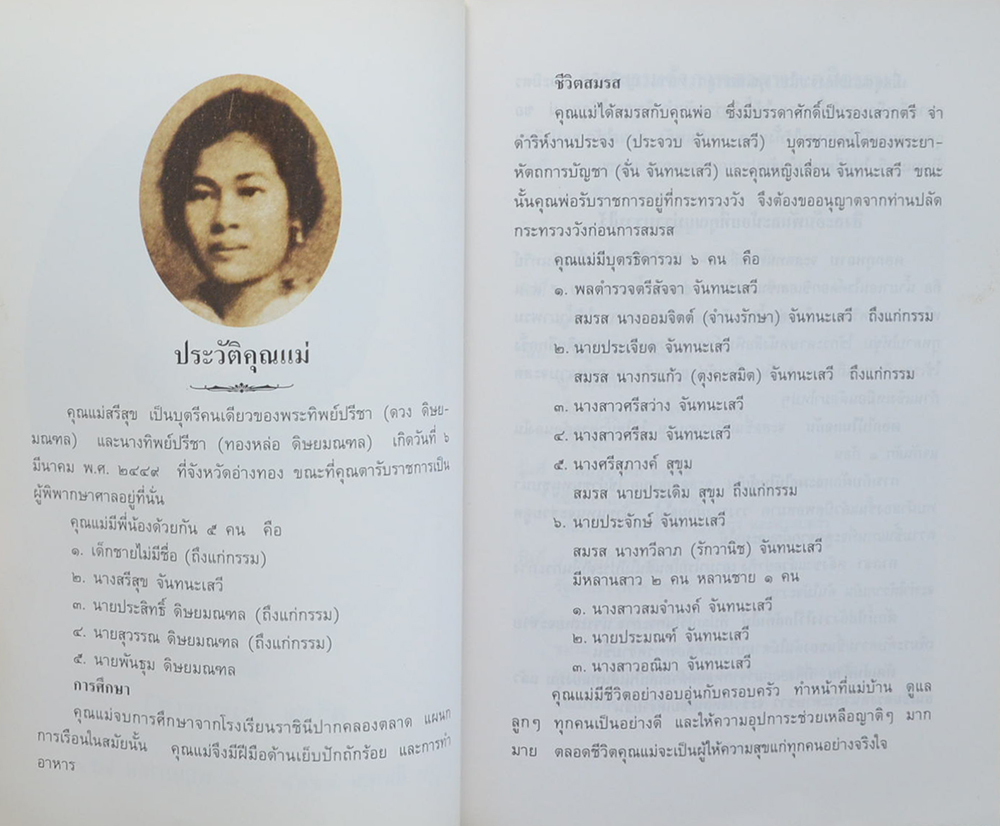 ประวัติคุณแม่
คุณแม่สรีสุข เป็นบุตรีคนเดียวของพระทิพย์ปรีชา (ดวง ดิษย-
มณฑล) และนางทิพย์ปรีชา (ทองหล่อ ดิษยมณฑล) เกิดวันที่ ๖
มีนาคม พ.ศ. ๒๔๔๙ ที่จังหวัดอ่างทอง ขณะที่คุณตารับราชการเป็น
ผู้พิพากษาศาลอยู่ที่นั่น
คุณแม่มีพี่น้องด้วยกัน ๕ คน คือ
๑. เด็กชายไม่มีชื่อ (ถึงแก่กรรม)
๒. นางสรีสุข จันทนะเสวี
๓. นายประสิทธิ์ ดิษยมณฑล (ถึงแก่กรรม)
๔. นายสุวรรณ ดิษยมณฑล (ถึงแก่กรรม)
๕. นายพันธุม ดิษยมณฑล
การศึกษา
คุณแม่จบการศึกษาจากโรงเรียนราชินีปากคลองตลาด แผนก
การเรือนในสมัยนั้น คุณแม่จึงมีฝีมือด้านเย็บปักถักร้อย และการทำ
อาหาร
ชีวิตสมรส
คุณแม่ได้สมรสกับคุณพ่อ ซึ่งมีบรรดาศักดิ์เป็นรองเสวกตรี จ่า
ดำริห์งานประจง (ประจวบ จันทนะเสวี) บุตรชายคนโตของพระยา-
หัตถการบัญชา (จั่น จันทนะเสวี) และคุณหญิงเลื่อน จันทนะเสวี ขณะ
นั้นคุณพ่อรับราชการอยู่ที่กระทรวงวัง จึงต้องขออนุญาตจากท่านปลัด
กระทรวงวังก่อนการสมรส
คุณแม่มีบุตรธิดารวม ๖ คน คือ
๑. พลตำรวจตรีสัจจา จันทนะเสวี
สมรส นางออมจิตต์ (จำนงรักษา) จันทนะเสวี ถึงแก่กรรม
๒. นายประเจียด จันทนะเสวี
สมรส นางกรแก้ว (ตุงคะสมิต) จันทนะเสวี ถึงแก่กรรม
๓. นางสาวศรีสว่าง จันทนะเสวี
๔. นางสาวศรีสม จันทนะเสวี
๕. นางศรีสุภางค์ สุขุม
สมรส นายประเดิม สุขุม ถึงแก่กรรม
๖. นายประจักษ์ จันทนะเสวี
สมรส นางทวีลาภ (รักวานิช) จันทนะเสวี
มีหลานสาว ๒ คน หลานชาย ๑ คน
๑. นางสาวสมจำนงค์ จันทนะเสวี
๒. นายประมณฑ์ จันทนะเสวี
๓. นางสาวอณิมา จันทนะเสวี
คุณแม่มีชีวิตอย่างอบอุ่นกับครอบครัว ทำหน้าที่แม่บ้าน ดูแล
ลูกๆ ทุกคนเป็นอย่างดี และให้ความอุปการะช่วยเหลือญาติๆ มาก
มาย ตลอดชีวิตคุณแม่จะเป็นผู้ให้ความสุขแก่ทุกคนอย่างจริงใจ